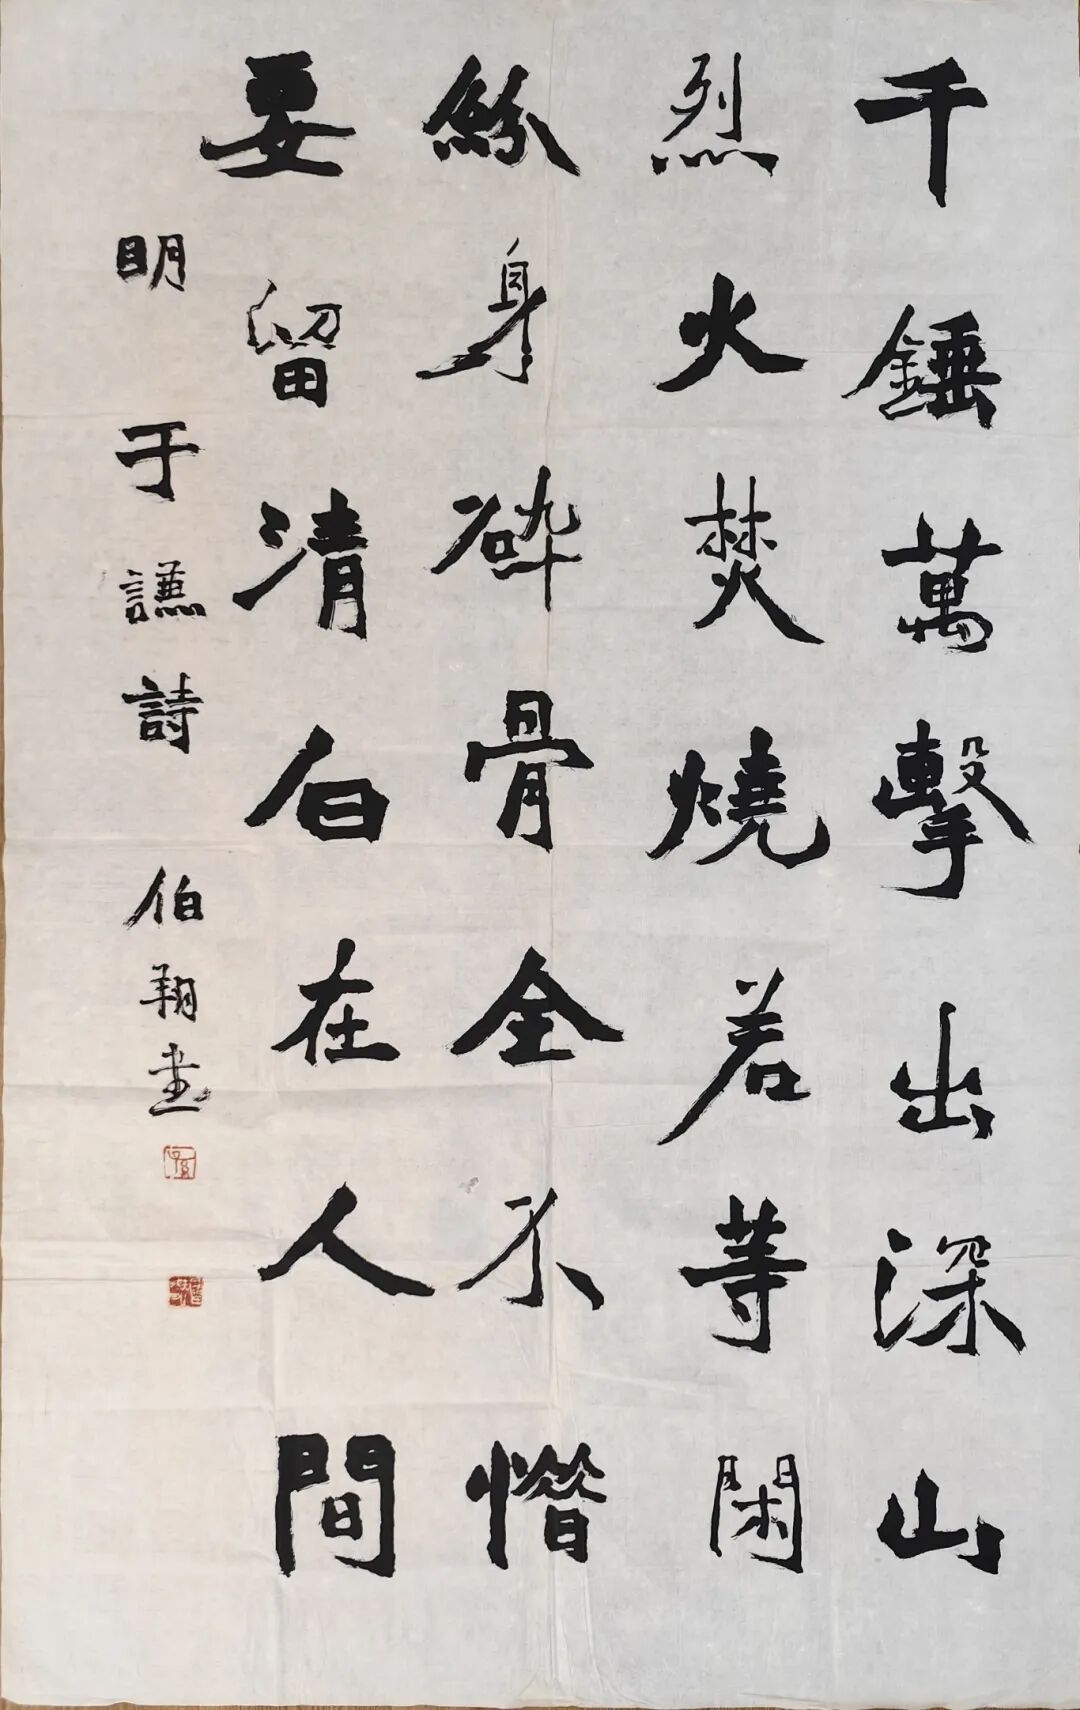 千錘萬擊出深山
烈火焚燒若等閑
紛身砕骨全不惜
要留清白在人間
明于謙詩 伯翔書